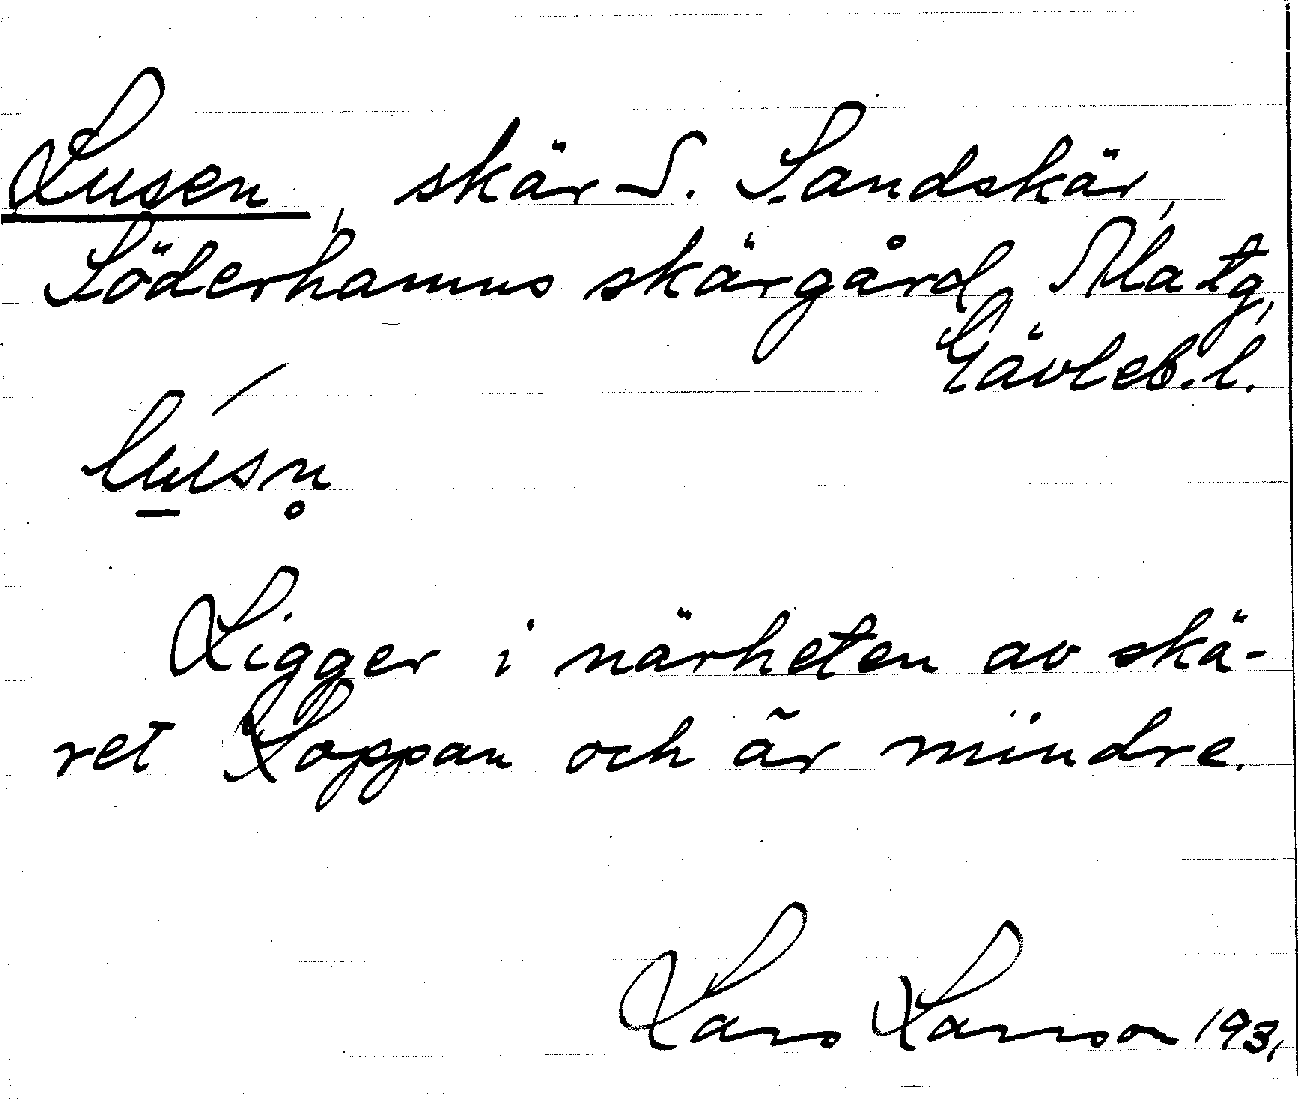 Lusen, skär S. Sandskär,
Söderhamns skärgård, Ala tg,
Gävleb. l.
Ligger i närheten av skä-
ret Loppan och är mindre.
Lars Larsson 193